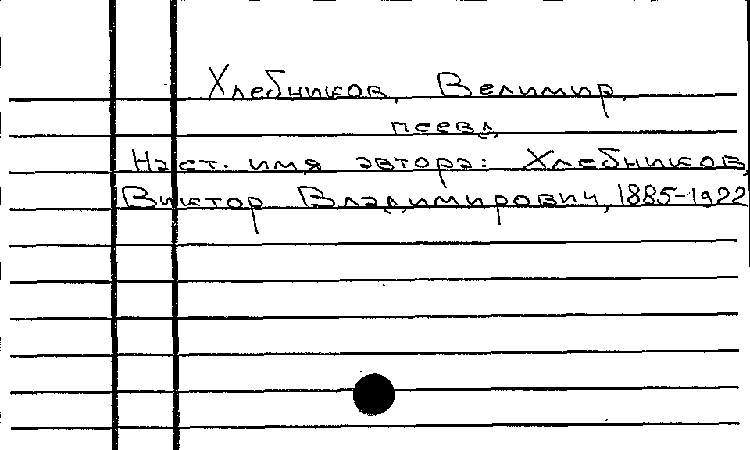 Хлебников, Велимир,
псевд.
Наст. имя автора: Хлебников,
Виктор Владимирович, 1885-1922